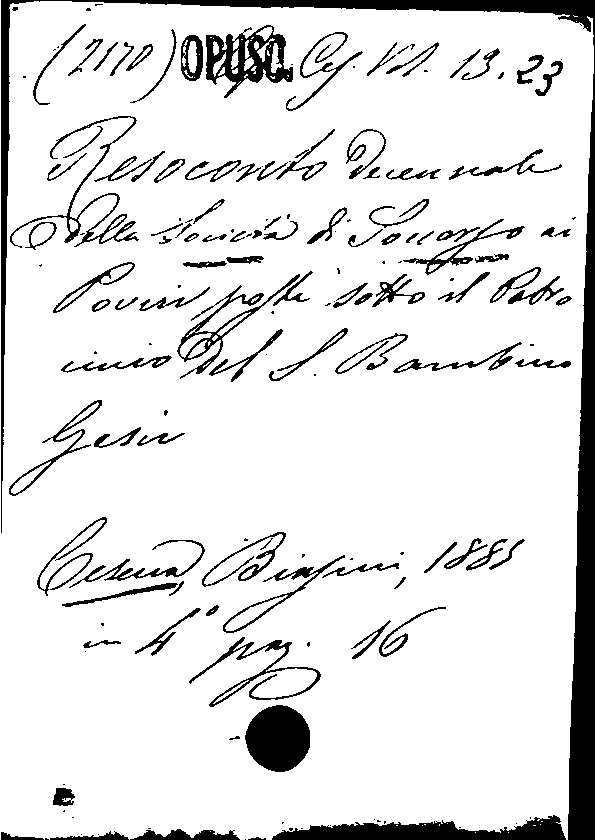 (2170) OPUSC. Ces. Vol. 13.23
Resoconto decennale
della Società di Soccorso ai
Poveri posti sotto il Patro
cinio del S. Bambino
Gesù
Cesena, Biasini, 1885
in 4° pag. 16